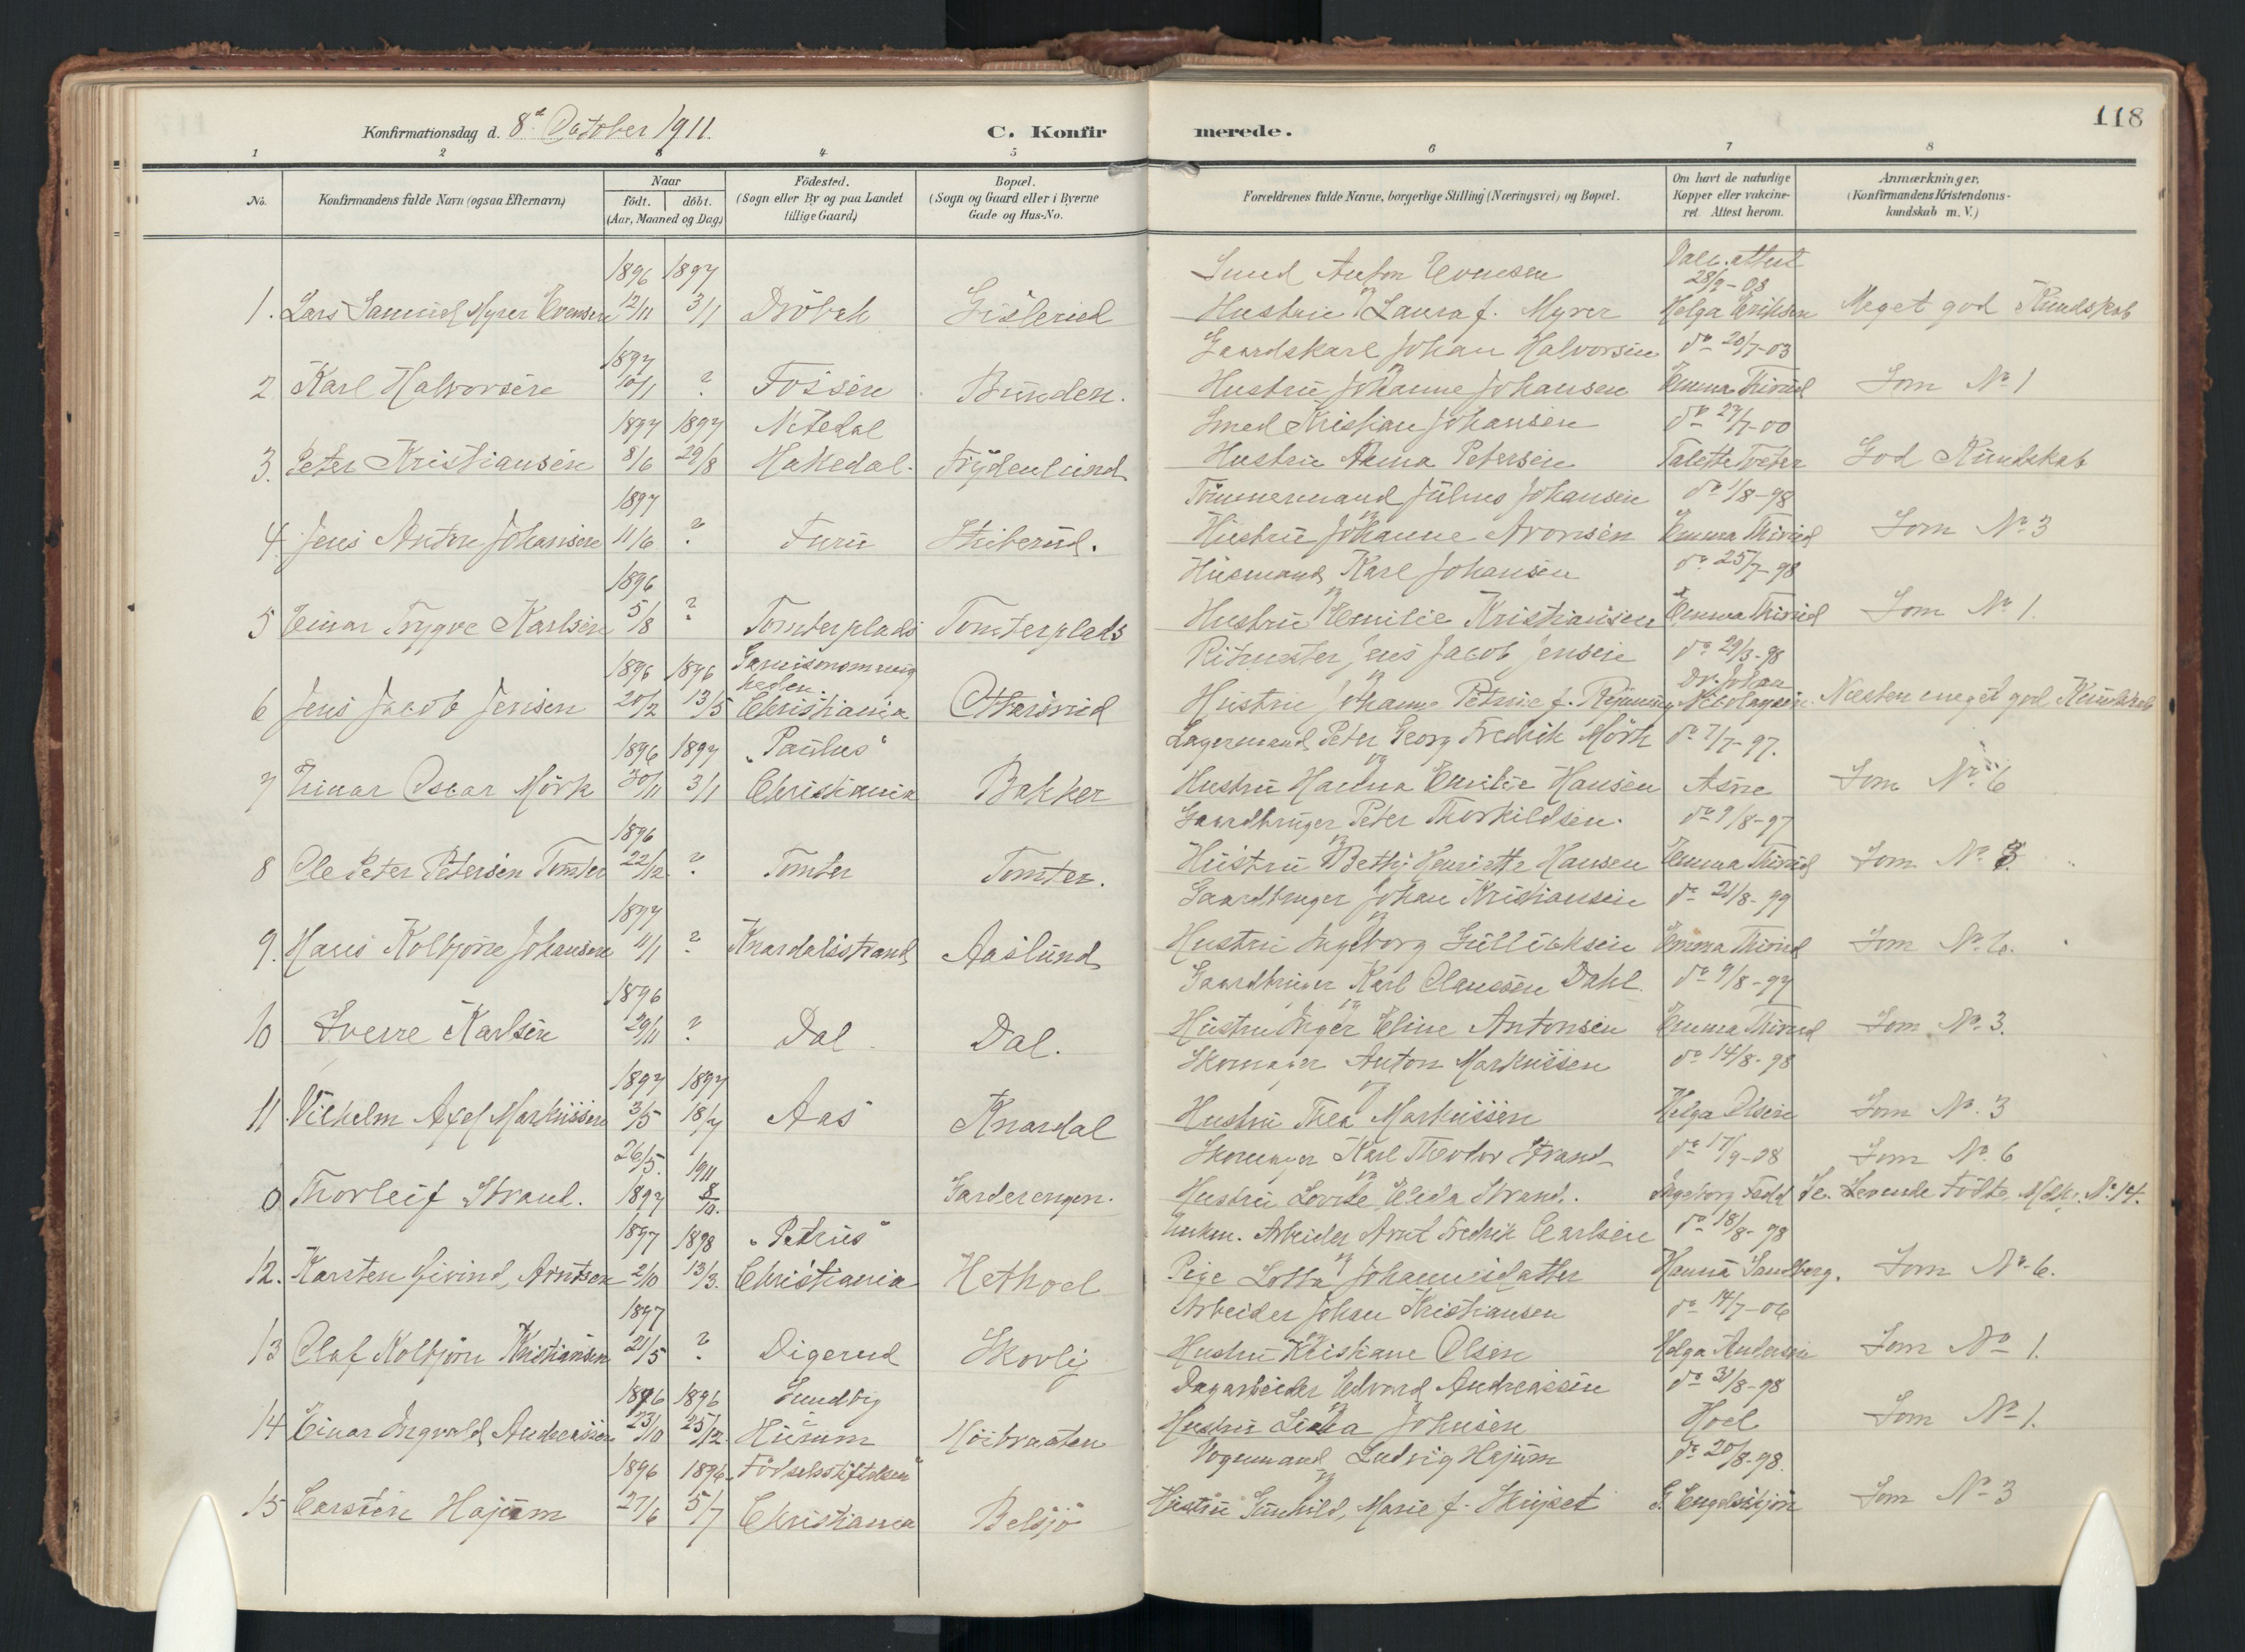 Konfirmationsdag d. 8de October 1911. C. Konfirmerede. 118
1 2 3 4 5 6 7 8
No. Konfirmandens fulde Navn (ogsaa Efternavn) Naar födt. döbt. (Aar, Maaned og Dag) Födested. (Sogn eller By og paa Landet tillige Gaard) Bopæl. (Sogn og Gaard eller i Byerne Gade og Hus-No. Forældrenes fulde Navne, borgerlige Stilling (Næringsvei) og Bopæl. Om havt de naturlige Kopper eller vakcineret. Attest herom. Anmærkninger, (Konfirmandens Kristendomskundskab m. V.)
1896 1897 Smed Anton Evensen Vacc. attest 28/9-08
1. Lars Samuel Myrer Evensen 12/11 3/1 Dröbak Gislerud Hustru Laura f. Myrer Helga Eriksen Meget god Kundskab
1897 Gaardskarl Johan Halvorsen do 20/7-03
2 Karl Halvorsen 10/1 ? Fossen Bunden. Hustru Johanne Johansen Emma Thirud Som No 1
1897 1897 Nitedal Smed Kristian Johansen do 27/7-00
3. Peter Kristiansen 8/6 29/8 Hakedal. Frydenlund Hustru Anna Petersen Talette Tveter God Kundskab
1897 Tömmermand Julius Johansen do 1/8-98
4 Jens Anton Johansen 11/6 ? Furu Stiberud. Hustru Johanne Aronsen Emma Thirud Som No 3
1896 Husmand Karl Johansen do 25/7-98
5 Einar Trygve Karlsen 5/8 ? Tomterplads Tomterplads Hustru Emilie Kristiansen Emma Thirud Som No 1.
1896 1896 Garnisonsmenigheden Ritmester Jens Jacob Jensen do 29/3-98
6 Jens Jacob Jensen 20/2 13/5 Christiania Hustru Johanne Petrine f. Dr. Johan Nicolaysen. Næsten meget god Kundskab
1896 1897 "Paulus" Lagermand Peter Georg Fredrik Mörk do 7/7-97.
7 Einar Oscar Mörk 30/11 3/1 Christiania Bakker Hustru Hanna Emilie Hansen Som No 6
1896 Gaardbruger Peter Thorkildsen. do 9/8-97
8 Ole Peter Petersen Tomter 22/12 ? Tomter Tomter. Hustru Betty Henriette Hansen Emma Thirud Som No 3.
1897 Gaardbruger Johan Kristiansen do 21/8-99
9. Hans Kolbjörn Johansen 11/1 ? Knardalsstrand Aaslund Hustru Ingeborg Gulliksen Emma Thirud Som No 6.
1896 Gaardbruger Karl Claussen Dahl do 9/8-97
10 Sverre Karlsen 29/11 ? Dal Dal. Hustru Inger Eline Antonsen Emma Thirud Som No 3.
1897 1897 Skomager Anton Markussen do 14/8-98
11. Vilhelm Axel Markussen 3/5 18/7 Aas Knardal Hustru Thea Markussen Helga Olsen Som No. 3
26/5. 1911 Skomager Karl Theodor Strand do 17/9-08 Som No. 6
0 Thorleif Strand. 1897 8/10. Garderengen. Hustru Lovise Elida Strand. Ingeborg Fadd Se. Levende Födte, Mdkj. No 14.
1897 1898 "Petrus" Enkem. Arbeider Arnt Fredrik Carlsen do 18/8-98
12. Karsten Eivind Arntsen 2/10 13/3. Christiania Hethoel Pige Lotta Johannesdatter Hanna Sandberg. Som No 6.
1897 Arbeider Johan Kristiansen do 14/7-06
13 Olaf Kolbjörn Kristiansen 21/5 ? Digerud Skovly Hustru Kristiane Olsen Helga Andersen Som No 1.
1896 1896 Sundby Dagarbeider Edvard Andreassen do 31/8-98
14 Einar Ingvald Andreassen 23/10 25/12. Hurum Höibraaten Hustru Johnsen Hoel Som No 1.
1896 1896 "Födselsstiftelsen" Vognmand Ludvig Hajum do 20/8-98.
15 Carsten Hajum 27/6 5/7 Christiania Belsjö Hustru Gunhild Marie f. G. Engelskjön Som No 3